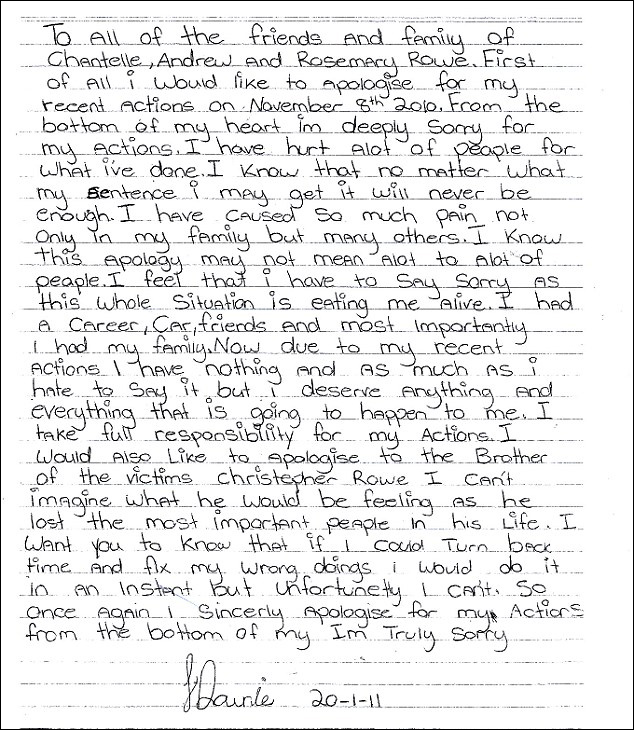 To All of the friends and family of
Chantelle, Andrew and Rosemary Rowe. First
of All i would like to Apologise for my
recent Actions on November 8th 2010. From the
bottom of my heart im deeply sorry for
my Actions. I have hurt Alot of people for
what i've done. I know that no matter what
my sentence i may get it will never be
enough. I have caused so much pain not
only in my family but many others. I know
this Apology may not mean Alot to Alot of
people. I feel that i have to say sorry as
this whole situation is eating me alive. I had
A career, car, friends and most importantly
i had my family. Now due to my recent
Actions I have nothing and as much as i
hate to say it but i deserve anything and
everything that is going to happen to me. I
take full responsibility for my Actions. I
would Also like to Apologise to the Brother
of the victims Christopher Rowe I can't
imagine what he would be feeling as he
lost the most important people in his life. I
want you to know that if I could Turn back
time and fix my wrong doings i would do it
in an instant but Unfortunetly I can't. So
Once Again I Sincerly Apologise for my Actions
from the bottom of my Im Truly Sorry
20-1-11